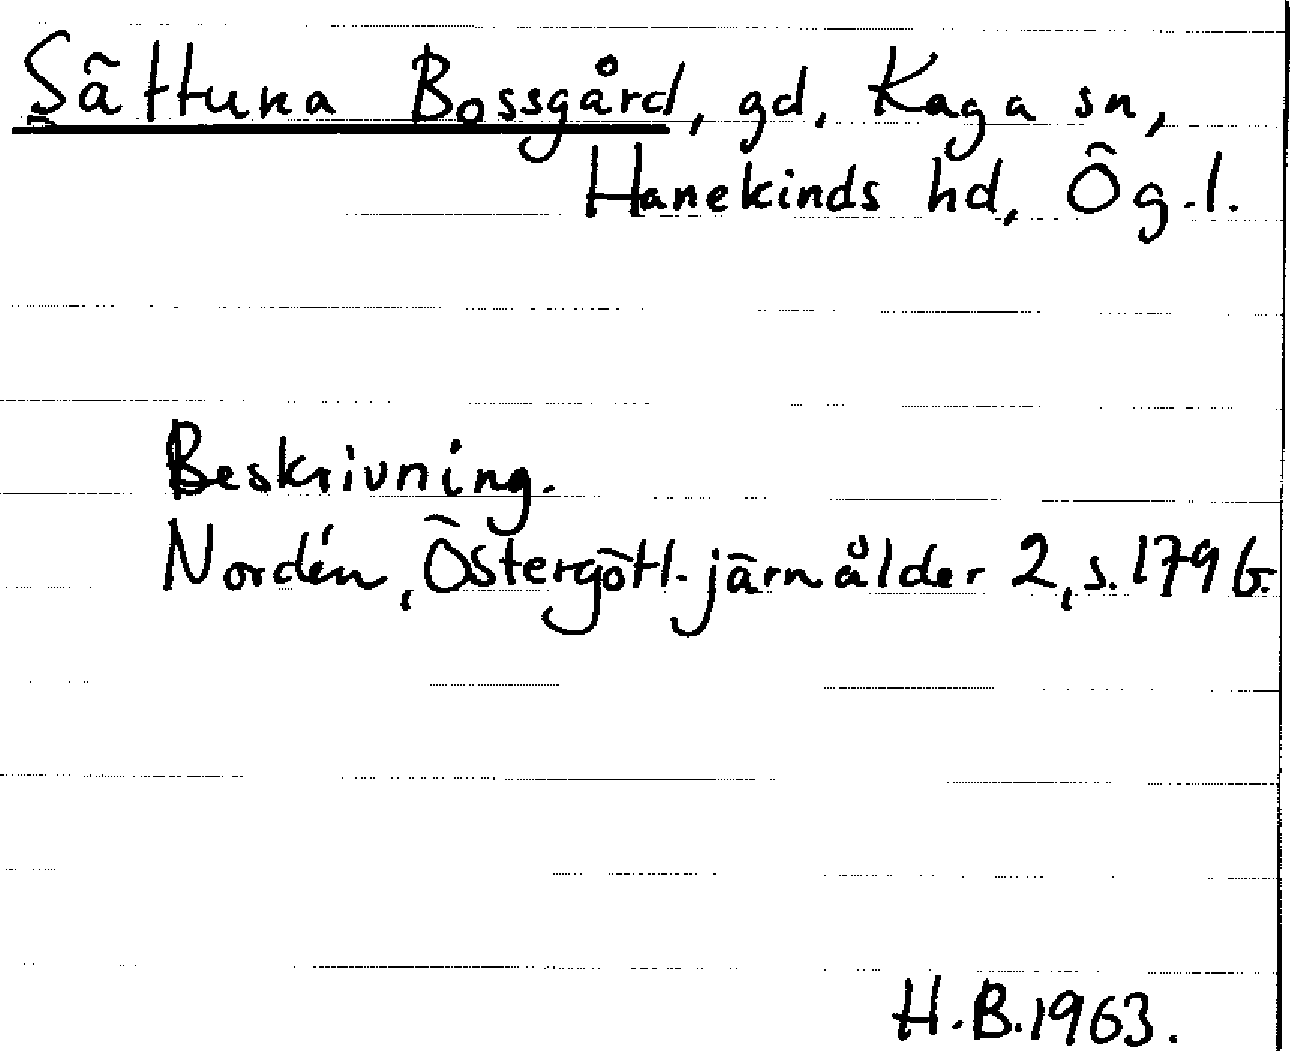 Sättuna Bossgård, gd, Kaga sn,
Hanekinds hd, Ög.l.
Beskrivning.
Nordén, Östergötl. järnålder 2, s. 179 b.
H.B. 1963.